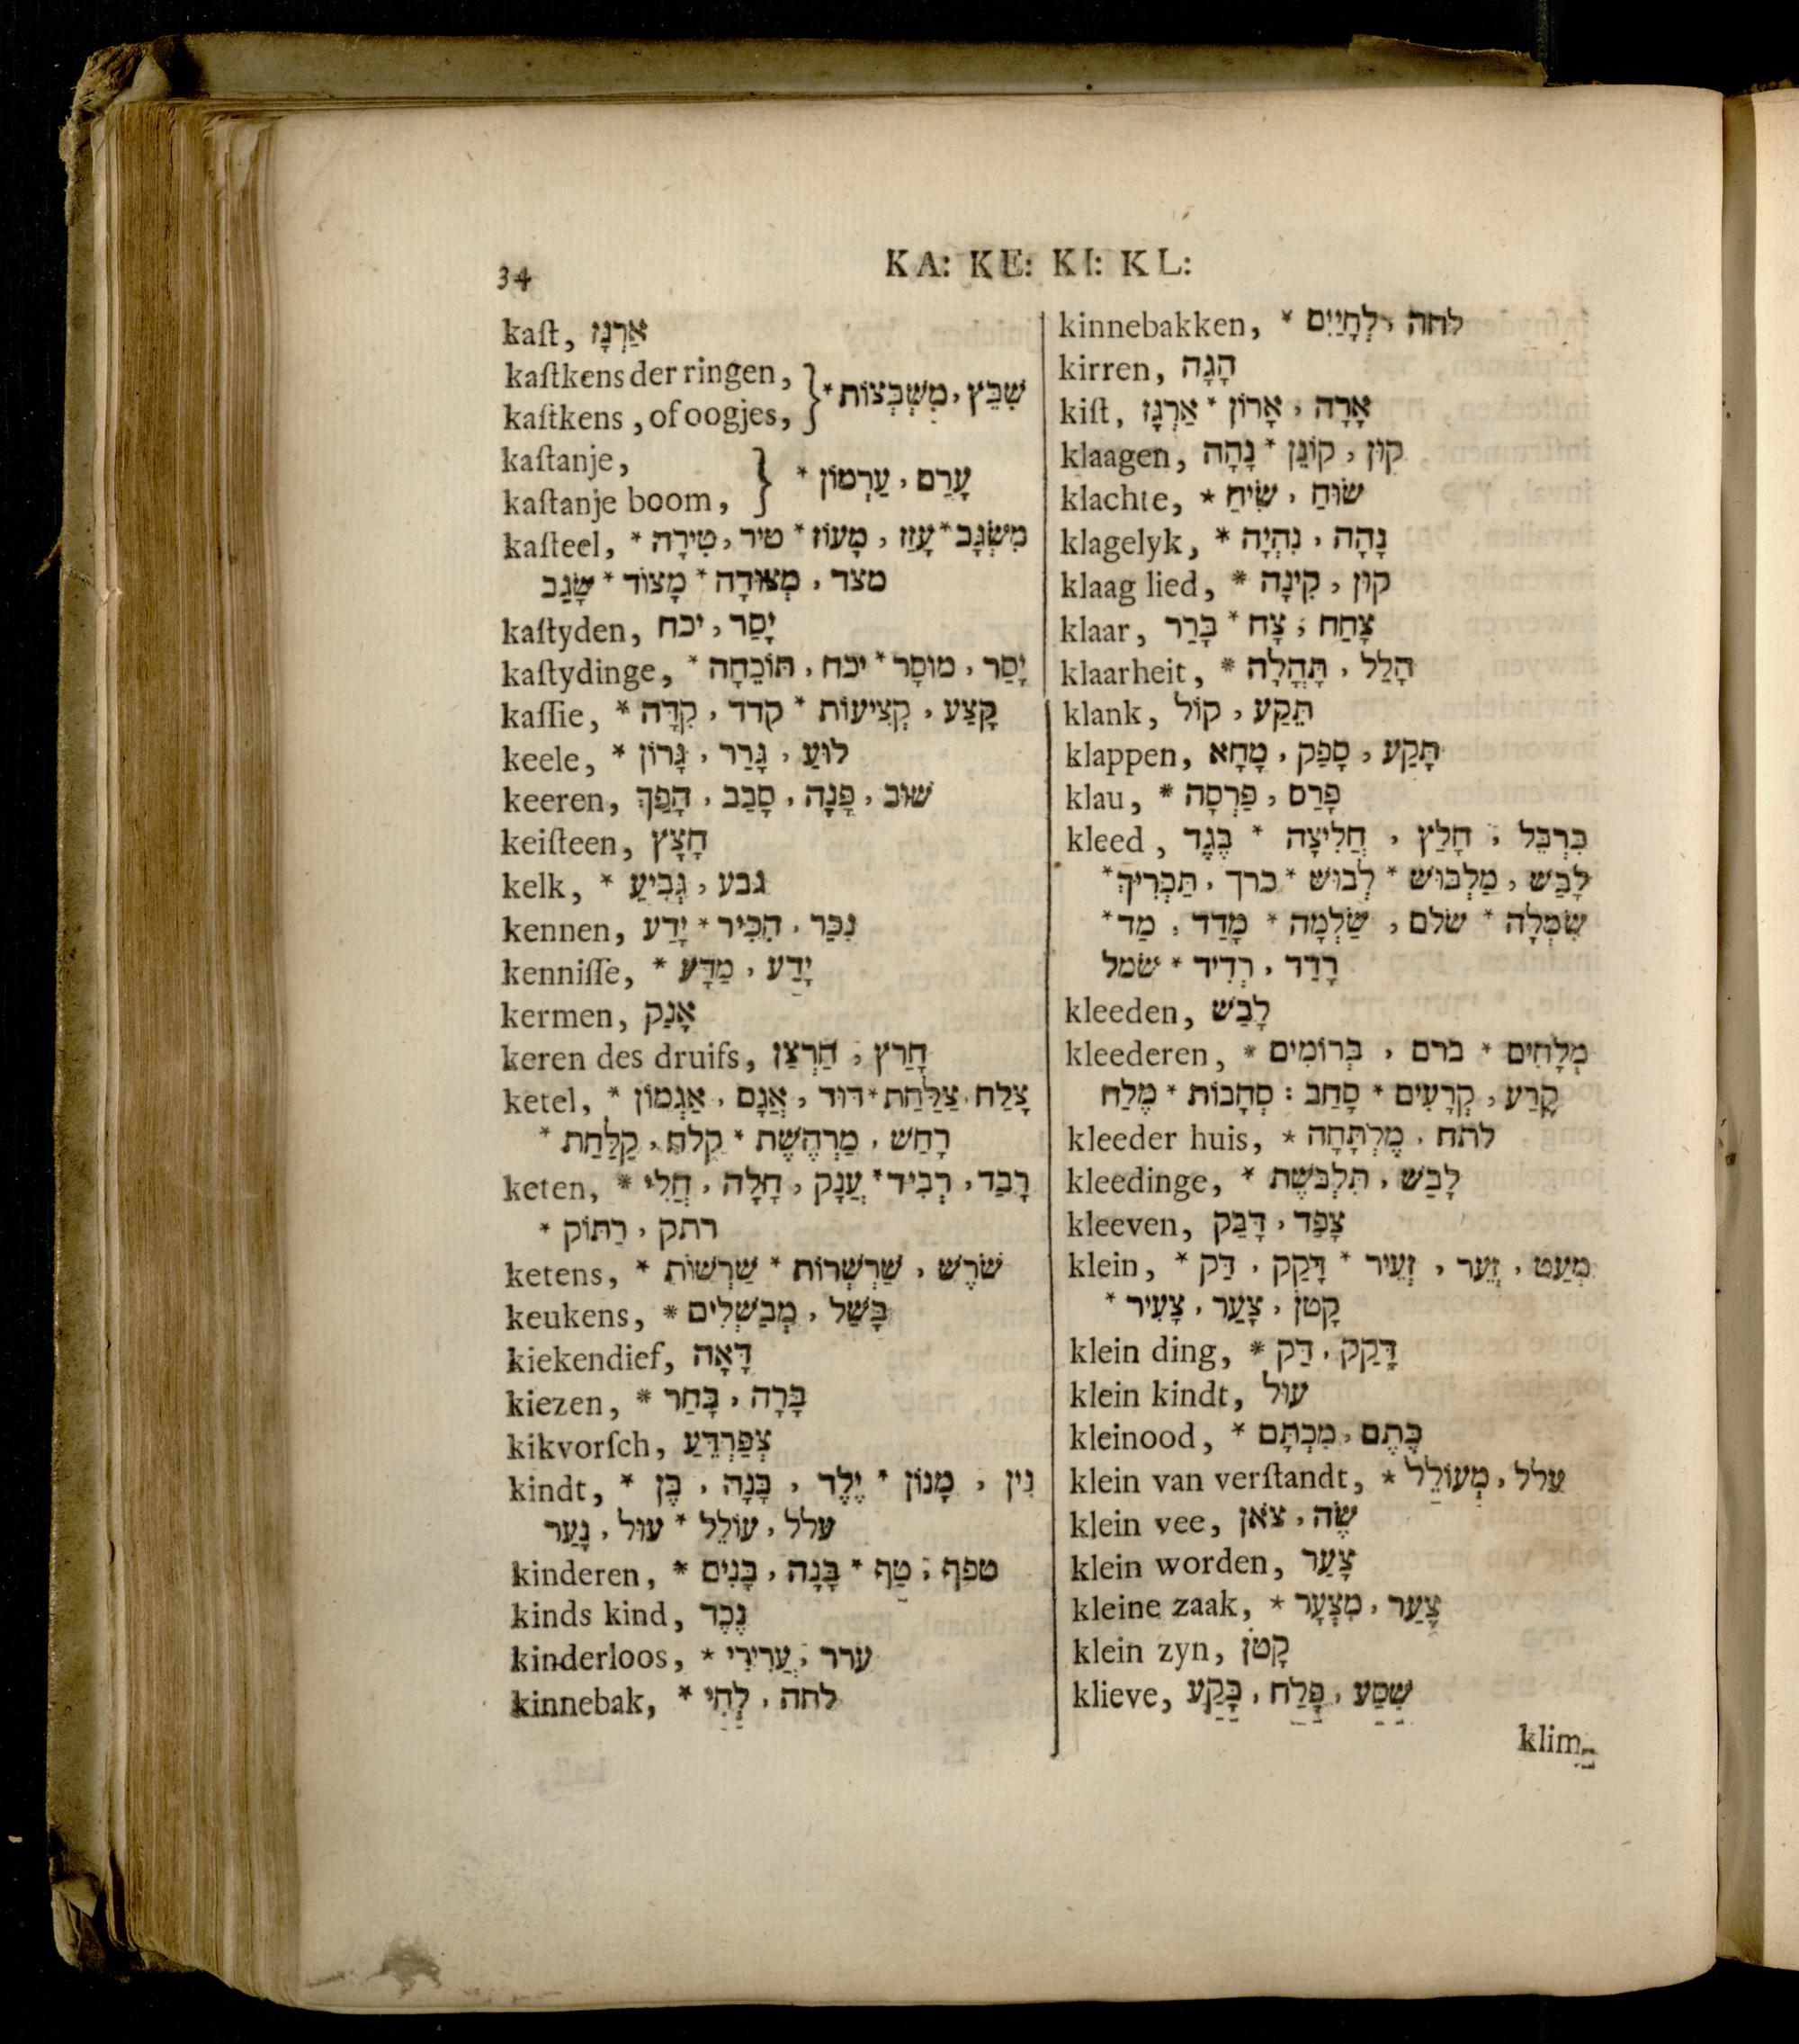 34
KA: KE: KI: KL:
kaſt, אַרְגָּז
kaſtkens der ringen,
kaſtkens, of oogjes, } שִׁבֵּץ, מִשְׁבְּצוֹת *
kaſtanje,
kaſtanje boom, } עָרַם, עַרְמוֹן *
kaſteel, מִשְׂגָּב * עָזַז, מָעוֹז * טיר, טִירָה *
מצד, מְצוּדָה * מָצוֹד * שָׂגַב
kaſtyden, יָסַר, יכח
kaſtydinge, יָסַר, מוּסָר * יכח, תּוֹכֵחָה *
kaſſie, קָצַע, קְצִיעוֹת * קדד, קִדָּה *
keele, לוּעַ, גָּרַר, גָּרוֹן *
keeren, שׁוּב, פָּנָה, סָבַב, הָפַךְ
keiſteen, חָצָץ
kelk, גבע, גְּבִיעַ *
kennen, נִכַּר, הִכִּיר * יָדַע
kenniſſe, יָדַע, מַדָּע *
kermen, אָנַק
keren des druifs, חָרַץ, חַרְצַן
ketel, צָלַח, צַלַּחַת * דּוּד, אֲגָם, אַגְמוֹן *
רָחַשׁ, מַרְחֶשֶׁת * קלח, קַלַּחַת *
keten, רָבַד, רְבִיד * עֲנָק, חָלָה, חֲלִי *
רתק, רַתּוֹק *
ketens, שֹׁרֶשׁ, שַׁרְשְׁרוֹת * שַׁרְשׁוֹת *
keukens, בָּשַׁל, מְבַשְּׁלִים *
kiekendief, דָּאָה
kiezen, בָּרָה, בָּחַר *
kikvorſch, צְפַרְדֵּעַ
kindt, נִין, מָנוֹן * יֶלֶד, בָּנָה, בֶּן *
עלל, עוֹלֵל * עוּל, נָעַר
kinderen, טפף, טַף * בָּנָה, בָּנִים *
kinds kind, נֶכֶד
kinderloos, ערר, עֲרִירִי *
kinnebak, לחה, לְחִי *
kinnebakken, לחה, לְחָיַיִם *
kirren, הָגָה
kiſt, אָרָה, אָרוֹן * אַרְגָּז
klaagen, קוּן, קוֹנֵן * נָהָה
klachte, שׂוּחַ, שִׂיחַ *
klagelyk, נָהָה, נִהְיָה *
klaag lied, קוּן, קִינָה *
klaar, צָחַח, צַח * בָּרַר
klaarheit, הָלַל, תָּהֳלָה *
klank, תֵּקַע, קוֹל
klappen, תָּקַע, סָפַק, מָחָא
klau, פָּרַס, פַּרְסָה *
kleed, כִּרְבֵּל, חָלַץ, חֲלִיצָה * בֶּגֶד
לָבַשׁ, מַלְבּוּשׁ * לְבוּשׁ * כרך, תַּכְרִיךְ *
שִׂמְלָה * שׂלם, שַׂלְמָה * מָדַד, מַד *
רָדַד, רְדִיד * שׂמל
kleeden, לָבַשׁ
kleederen, מְלָחִים * ברם, בְּרוֹמִים *
קָרַע, קְרָעִים * סָחַב : סְחָבוֹת * מֶלַח
kleeder huis, לתח, מֶלְתָּחָה *
kleedinge, לָבַשׁ, תִּלְבֹּשֶׁת *
kleeven, צָפַד, דָּבַק
klein, מְעַט, זְעֵר, זְעֵיר * דָּקַק, דַּק *
קָטֹן, צָעַר, צָעִיר *
klein ding, דָּקַק, דַּק *
klein kindt, עוּל
kleinood, כֶּתֶם, מִכְתָּם *
klein van verſtandt, עלל, מְעוֹלֵל *
klein vee, שֶׂה, צֹאן
klein worden, צָעַר
kleine zaak, צָעַר, מִצְעָר *
klein zyn, קָטֹן
klieve, שִׁסַּע, פָּלַח, בָּקַע
klim-